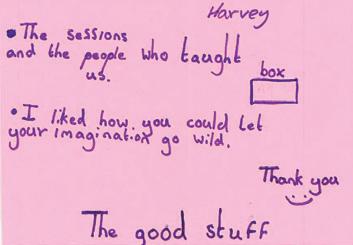 Harvey
• The sessions
and the people who taught
us.
box
• I liked how you could let
your imagination go wild.
Thank you
The good stuff